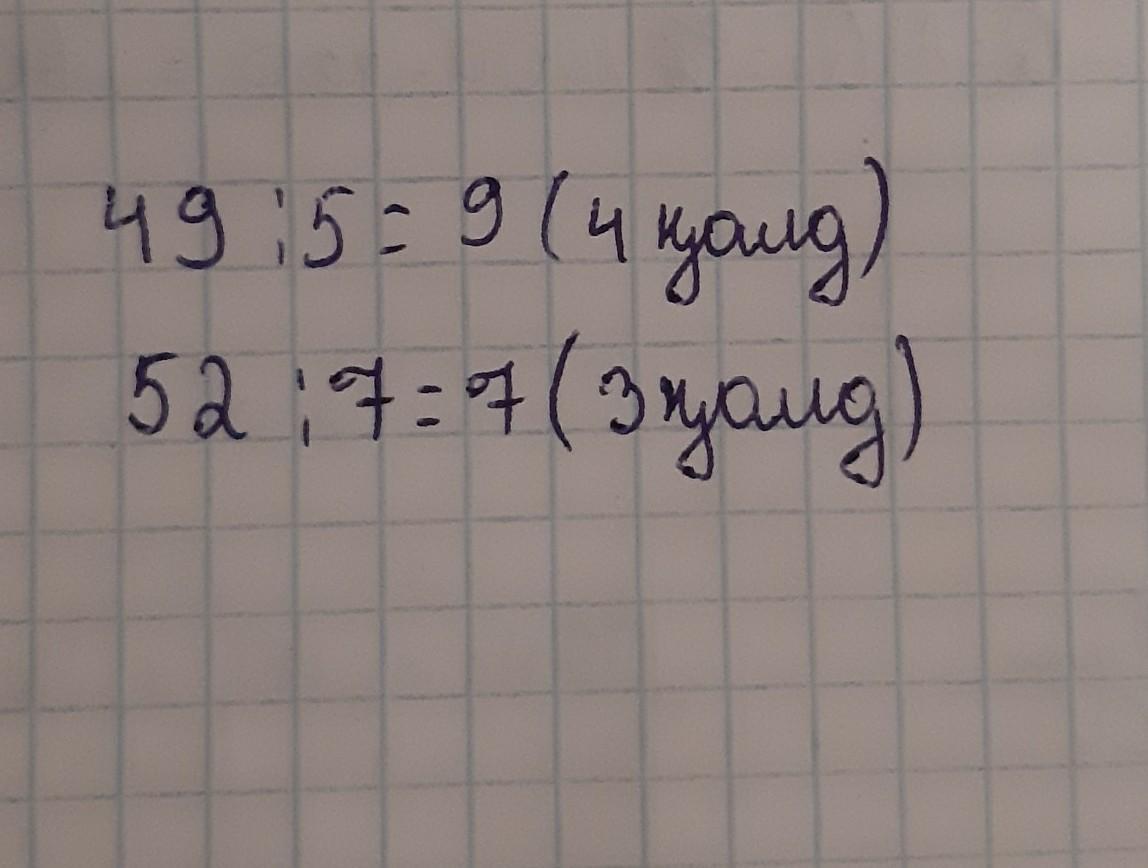 49 : 5 = 9 ( 4 қалд )
52 : 7 = 7 ( 3 қалд )